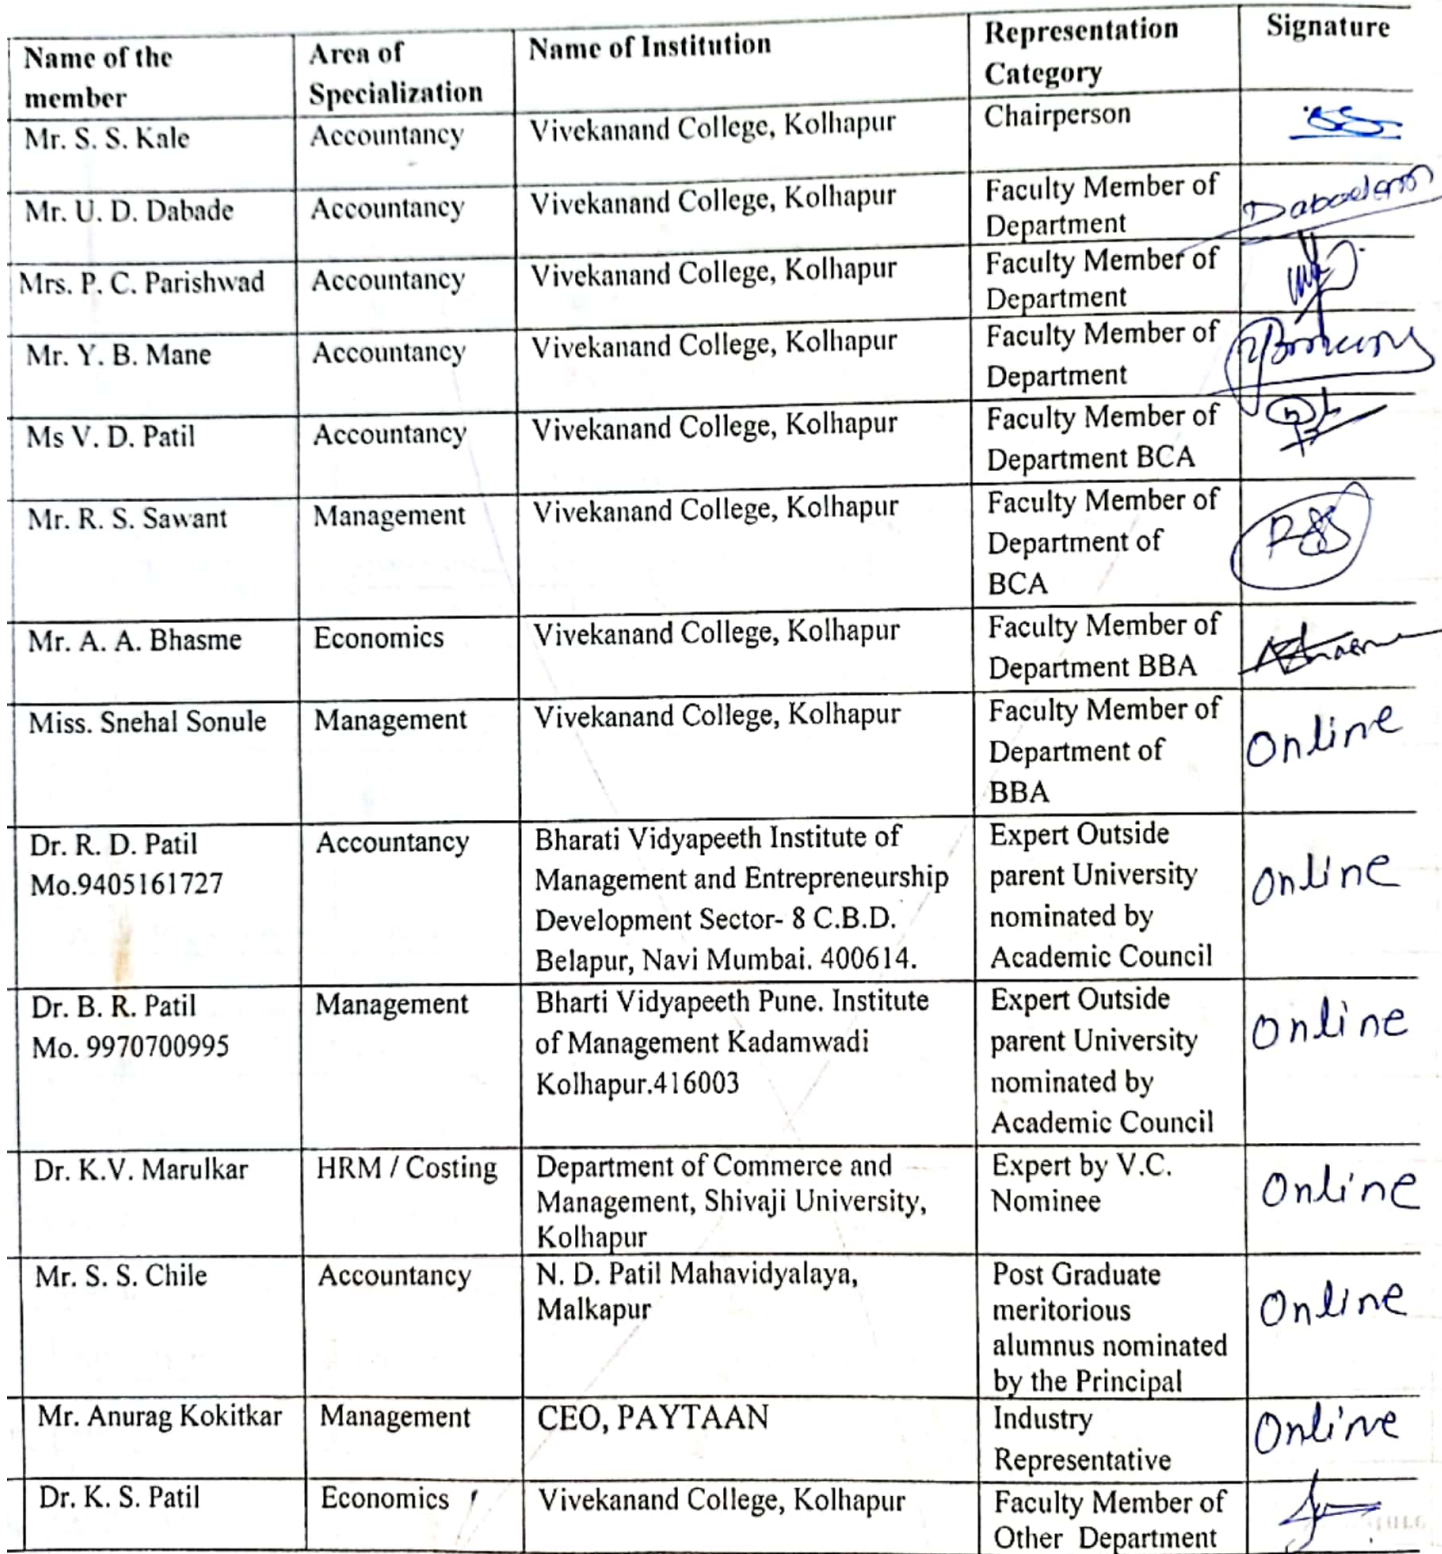 Name of the member
Area of Specialization
Name of Institution
Representation Category
Signature
Mr. S. S. Kale
Accountancy
Vivekanand College, Kolhapur
Chairperson
Mr. U. D. Dabade
Accountancy
Vivekanand College, Kolhapur
Faculty Member of
Department
Mrs. P. C. Parishwad
Accountancy
Vivekanand College, Kolhapur
Faculty Member of
Department
Mr. Y. B. Mane
Accountancy
Vivekanand College, Kolhapur
Faculty Member of
Department
Ms V. D. Patil
Accountancy
Vivekanand College, Kolhapur
Faculty Member of
Department BCA
Mr. R. S. Sawant
Management
Vivekanand College, Kolhapur
Faculty Member of
Department of
BCA
Mr. A. A. Bhasme
Economics
Vivekanand College, Kolhapur
Faculty Member of
Department BBA
Miss. Snehal Sonule
Management
Vivekanand College, Kolhapur
Faculty Member of
Department of
BBA
Online
Dr. R. D. Patil
Mo.9405161727
Accountancy
Bharati Vidyapeeth Institute of
Management and Entrepreneurship
Development Sector- 8 C.B.D.
Belapur, Navi Mumbai. 400614.
Expert Outside
parent University
nominated by
Academic Council
Online
Dr. B. R. Patil
Mo. 9970700995
Management
Bharti Vidyapeeth Pune. Institute
of Management Kadamwadi
Kolhapur.416003
Expert Outside
parent University
nominated by
Academic Council
Online
Dr. K.V. Marulkar
HRM / Costing
Department of Commerce and
Management, Shivaji University,
Kolhapur
Expert by V.C.
Nominee
Online
Mr. S. S. Chile
Accountancy
N. D. Patil Mahavidyalaya,
Malkapur
Post Graduate
meritorious
alumnus nominated
by the Principal
Online
Mr. Anurag Kokitkar
Management
CEO, PAYTAAN
Industry
Representative
Online
Dr. K. S. Patil
Economics
Vivekanand College, Kolhapur
Faculty Member of
Other Department